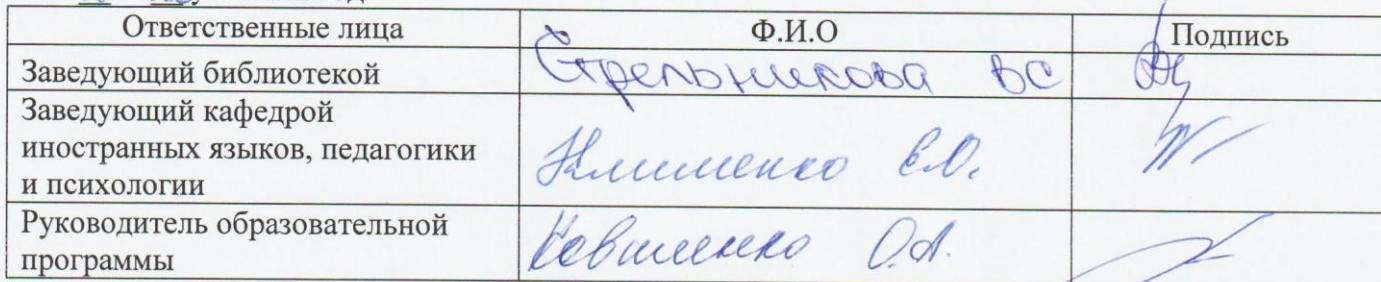 Ответственные лица Ф.И.О Подпись
Заведующий библиотекой Стрельникова ВС
Заведующий кафедрой
иностранных языков, педагогики
и психологии Клименко Е.О.
Руководитель образовательной
программы О.А.